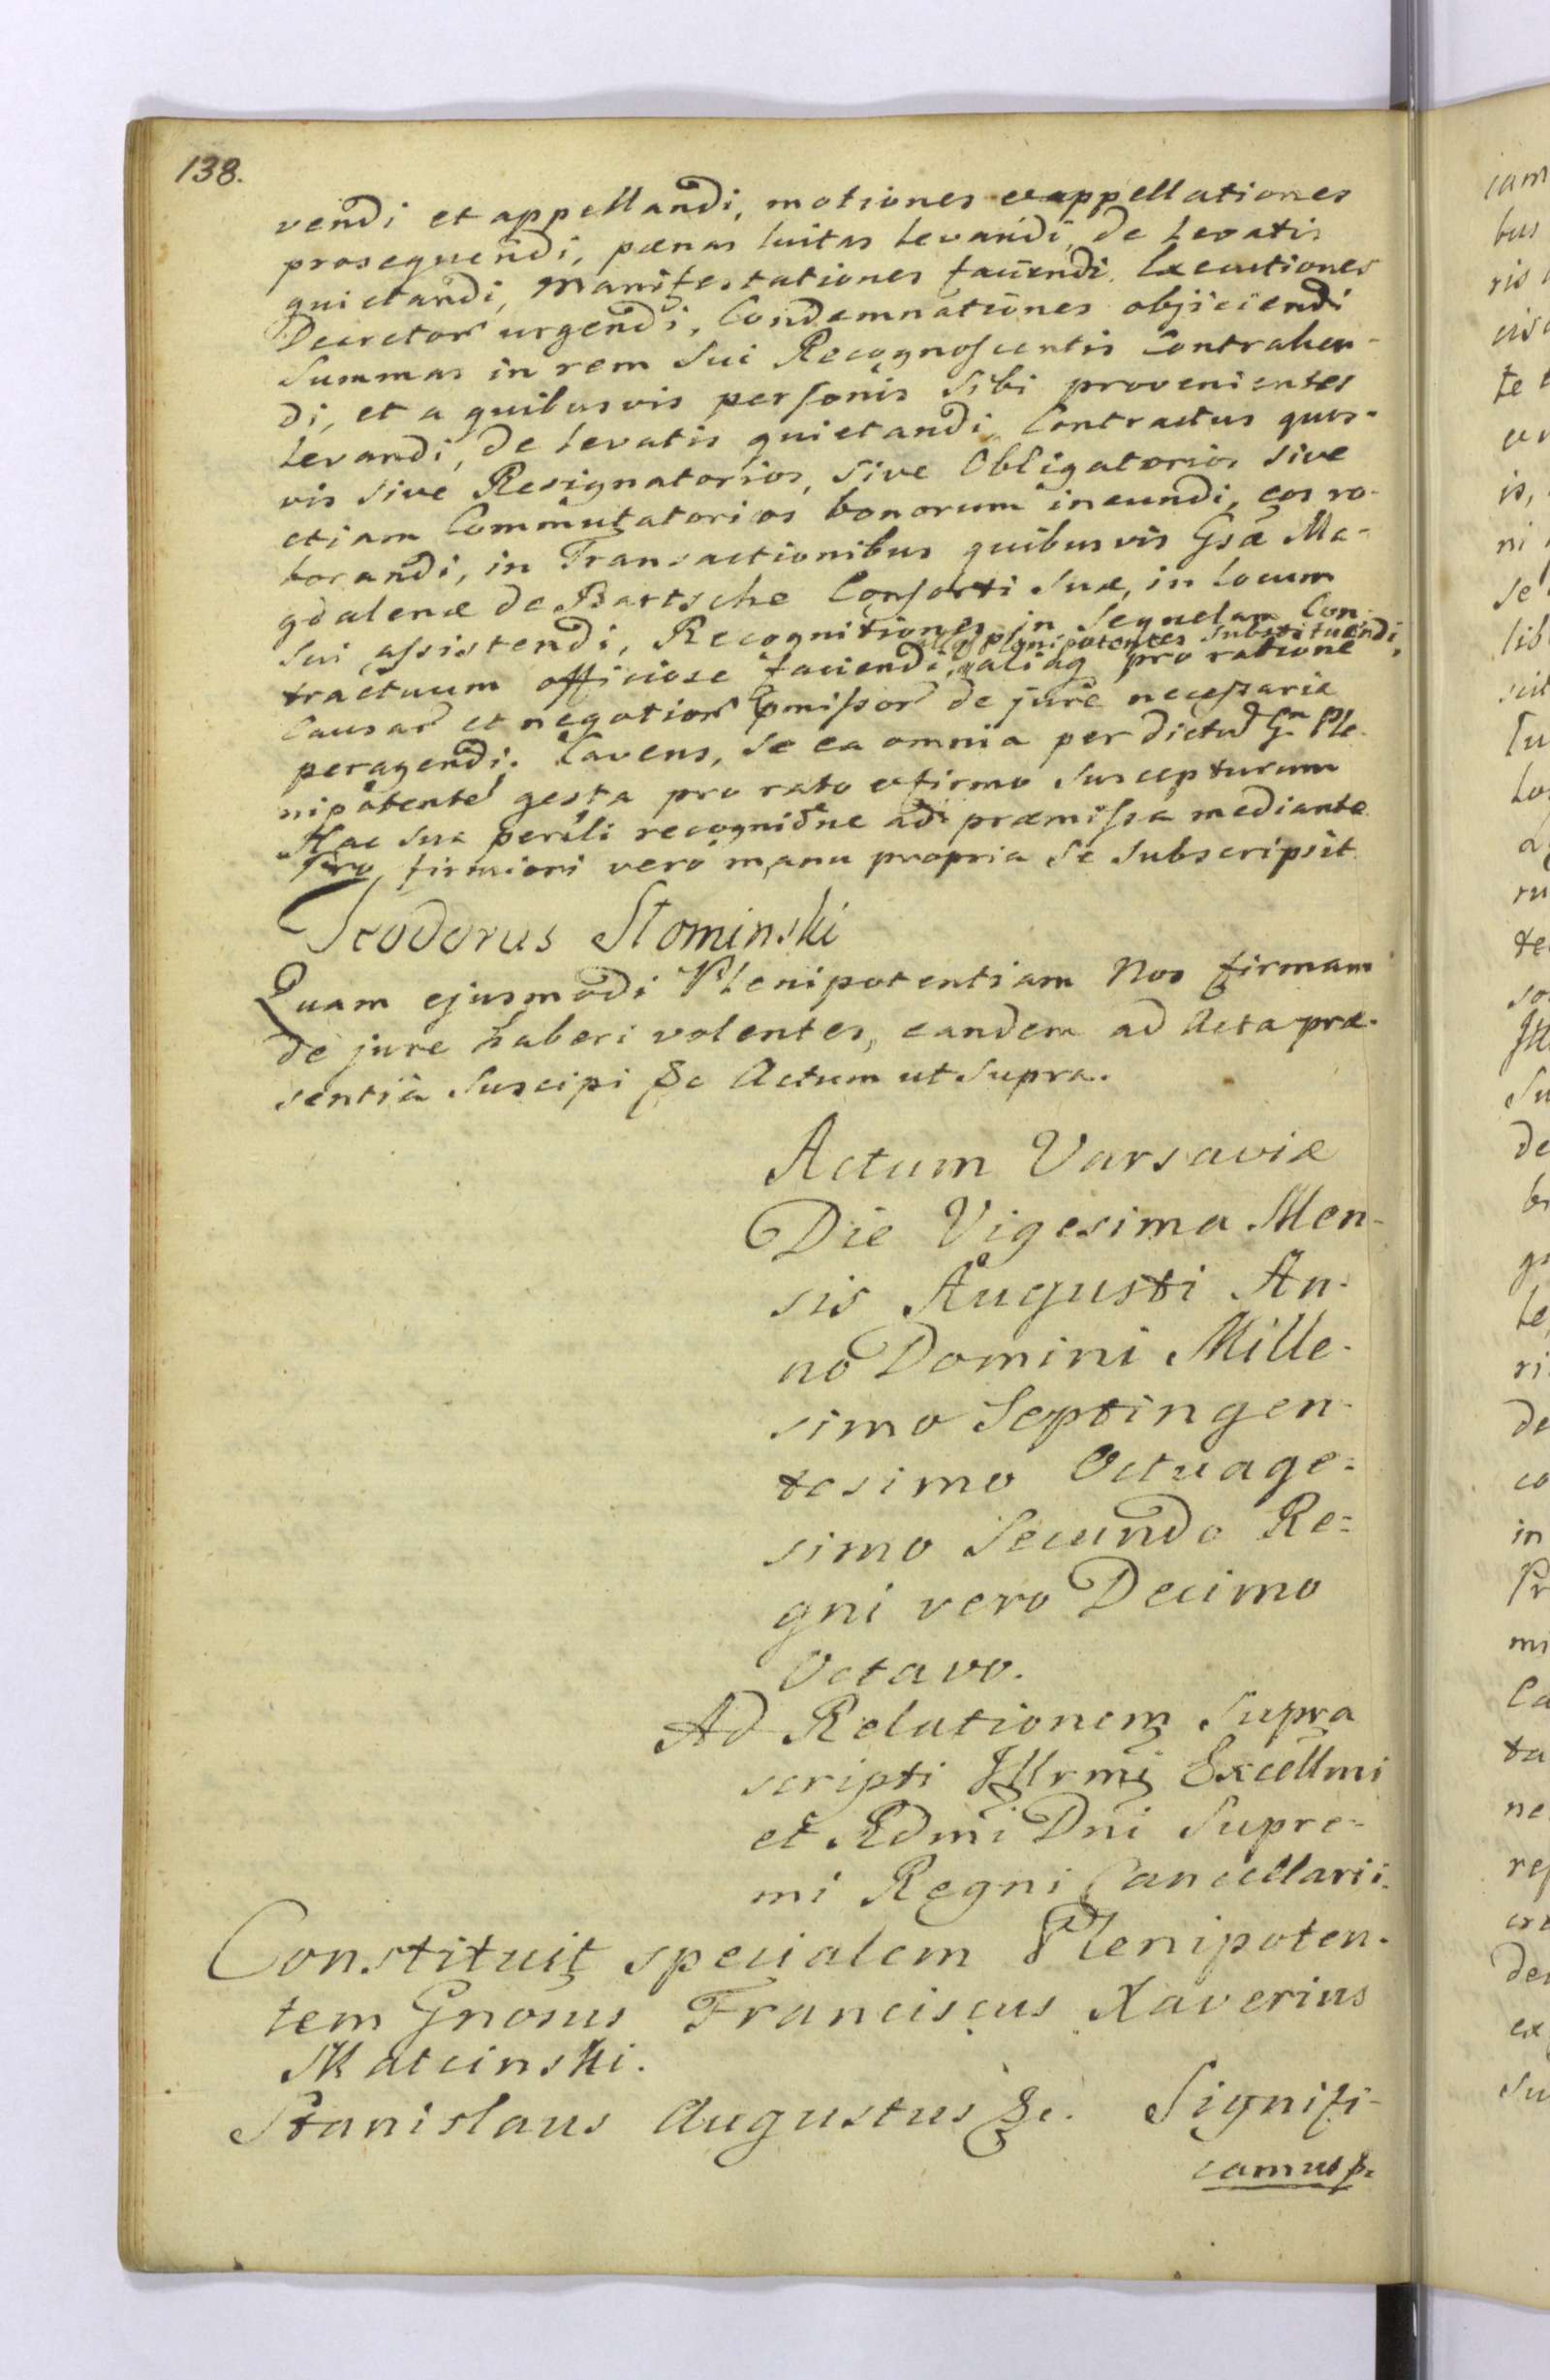 138.
vendi et appellandi, motiones et appellationes
prosequendi, pœnas luitas levandi, de levatis
quietandi, Manifestationes faciendi, Executiones
Decretor urgendi, Condemnationes objiciendi
Summas in rem Sui Recognoscentis Contrahen-
di, et a quibusvis personis Sibi provenientes
levandi, de levatis quietandi, Contractus quos-
vis sive Resignatorios, sive Obligatorios sive
etiam Commutatorios bonorum ineundi, eos ro-
borandi, in Transactionibus quibusvis Gsæ Ma-
gdalenæ de Bartsche Consorti Suæ, in locum
Sui assistendi, Recognitiones in Sequelam Con-
plenipotentes substituendi,
tractuum officiose faciendi, aliaq pro ratione
Causar et negotior pmissor de jure necessaria
peragendi. Cavens, se ea omnia per dictu Gn Ple-
nipotente gesta pro rato et firmo suscepturum
Hac sua perili recognidne adi præmissa mediante
Pro firmiori vero manu propria se subscripsit
Teodorus Słominski
Quam ejusmodi Plenipotentiam Nos firmam
de jure haberi volentes, eandem ad Acta præ-
sentia Suscipi &c Actum ut Supra.
Actum Varsaviæ
Die Vigesima Men-
sis Augusti An-
no Domini Mille-
simo Septingen-
tesimo Octuage-
simo Secundo Re-
gni vero Decimo
Octavo.
Ad Relationem Supra
scripti Illrmi Excellmi
et Rdmi Dni Supre-
mi Regni Cancellarii.
Constituit specialem Plenipoten-
tem Gnosus Franciscus Xaverius
Matcinski.
Stanislaus Augustus &c. Signifi-
camus p.